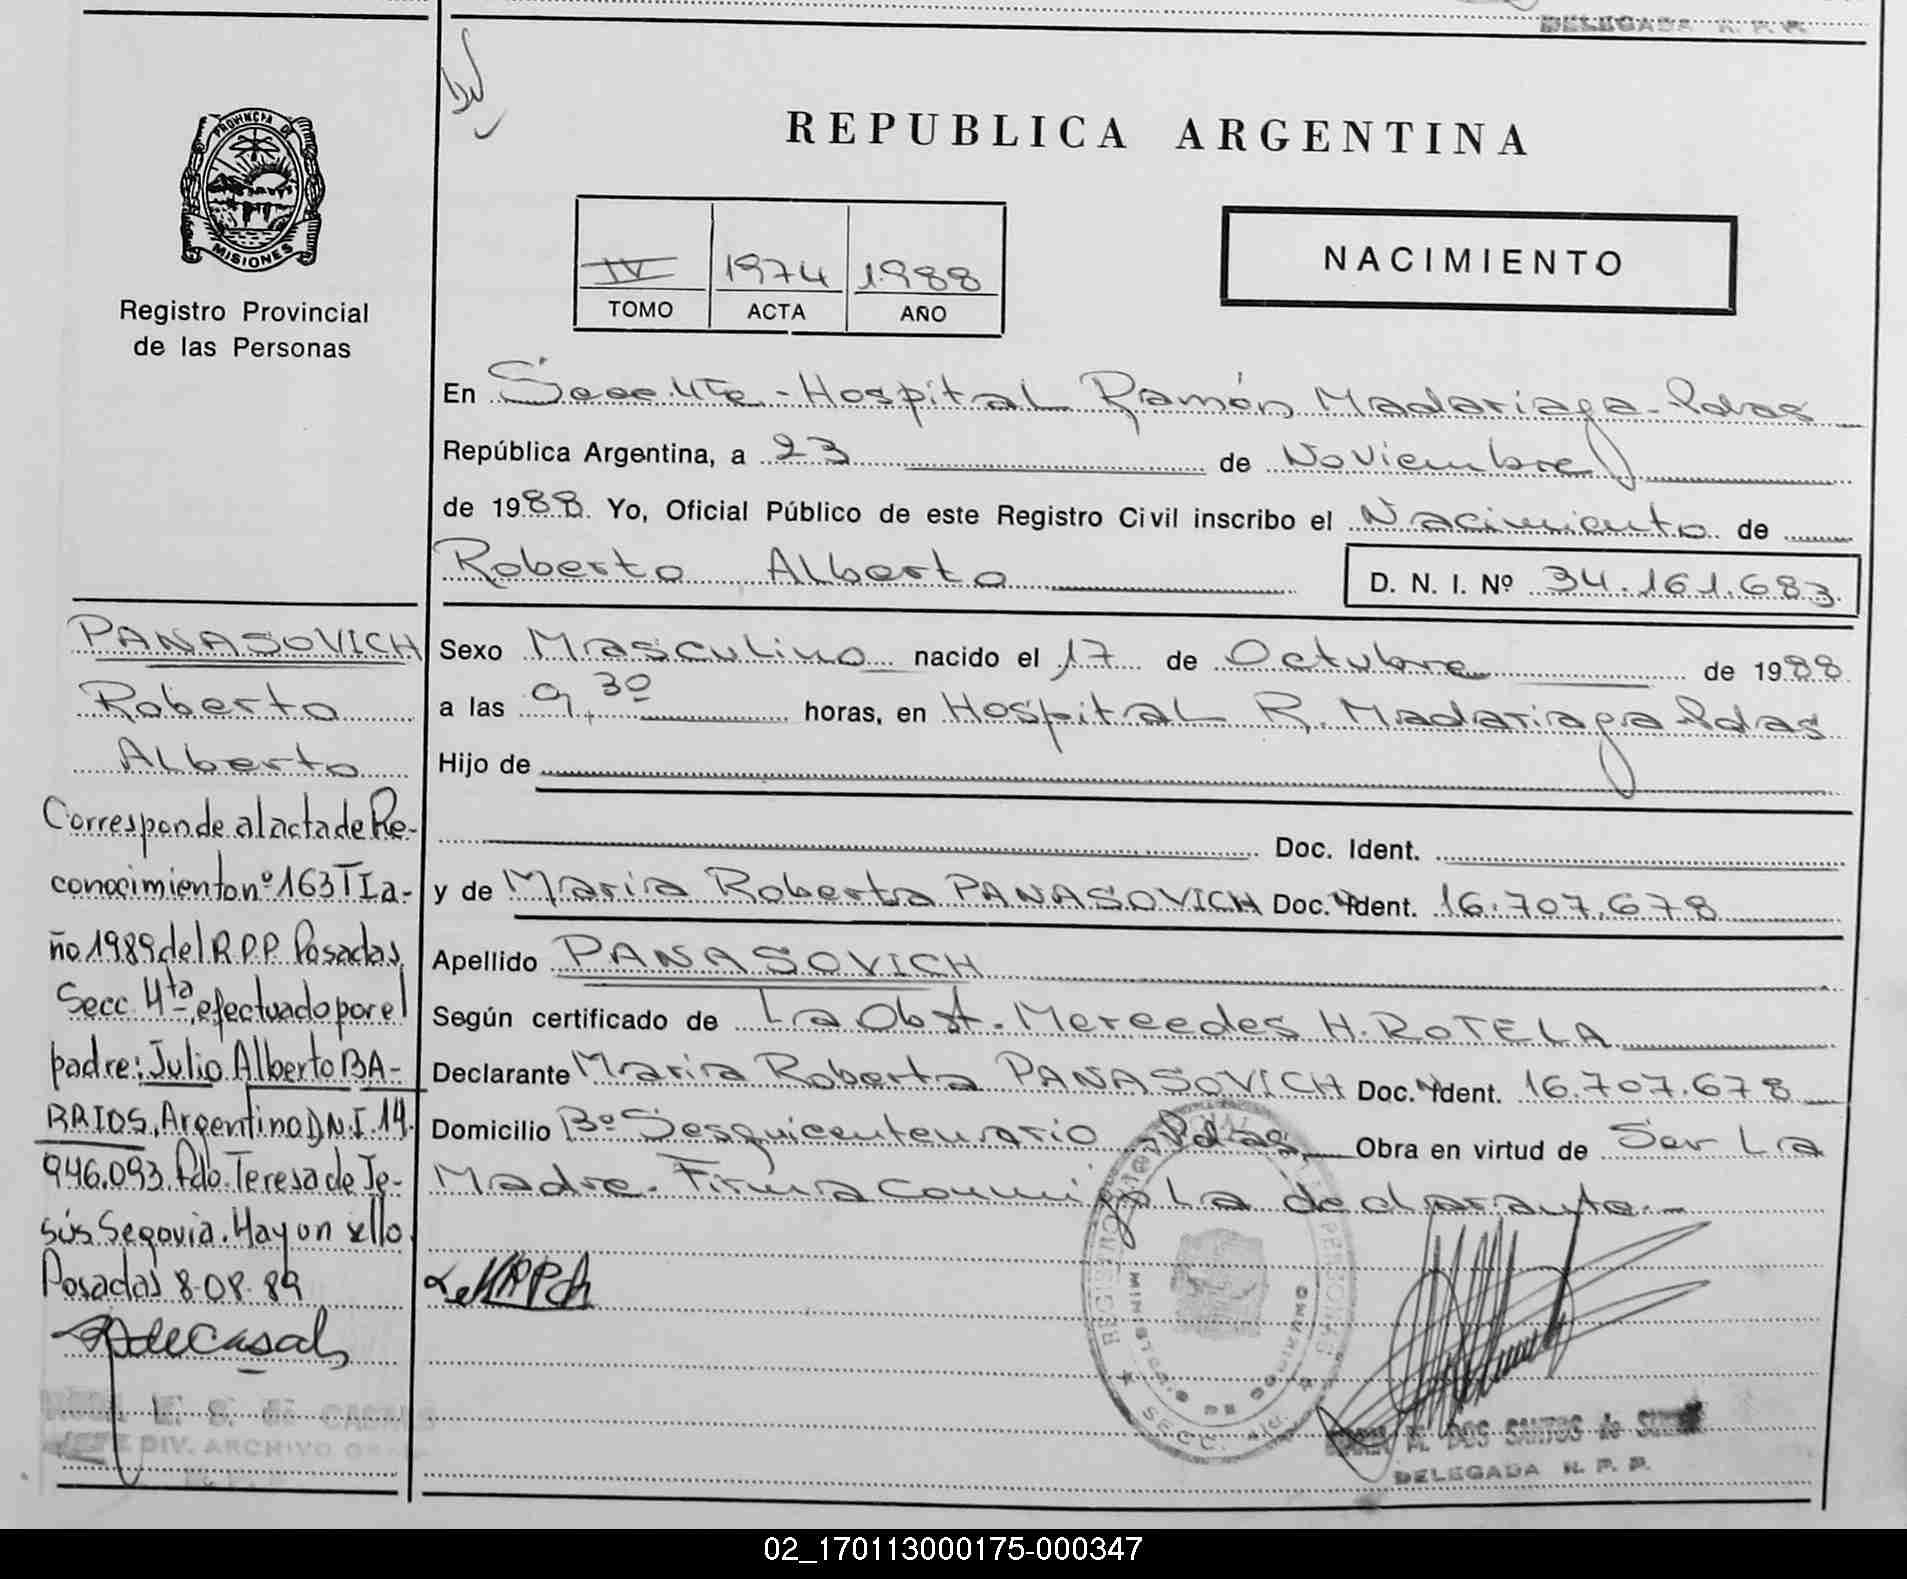 DELEGADA R. P. P.
PROVINCIA DE
MISIONES
Registro Provincial
de las Personas
REPUBLICA ARGENTINA
IV 1974 1988
TOMO ACTA AÑO
NACIMIENTO
En Secc. 4ta - Hospital Ramón Madariaga - Pdas
República Argentina, a 23 de Noviembre
de 1988 Yo, Oficial Público de este Registro Civil inscribo el Nacimiento de
Roberto Alberto
D. N. I. Nº 34.161.683
Sexo Masculino nacido el 17 de Octubre de 1988
a las 9,30 horas, en Hospital R. Madariaga Pdas
Hijo de
Doc. Ident.
y de Maria Roberta PANASOVICH Doc. Ident. 16.707.678
Apellido PANASOVICH
Según certificado de La Obst. Mercedes H. ROTELA
Declarante Maria Roberta PANASOVICH Doc. Ident. 16.707.678
Domicilio Bº Sesquicentenario - Pdas, Obra en virtud de Ser La
Madre. Firma conmigo La declarante.-
PANASOVICH
Roberto
Alberto
Corresponde al acta de Re-
conocimiento nº 163 T I a-
ño 1989 del R.P.P. Posadas,
Secc. 4ta, efectuado por el
padre: Julio Alberto BA-
RRIOS, Argentino D.N.I. 14.
946.093. Fdo. Teresa de Je-
sús Segovia. Hay un sello
Posadas 8-08-89
DIV. ARCHIVO
SECC. 4ta.
DOS SANTOS de
DELEGADA R. P. P.
02_170113000175-000347